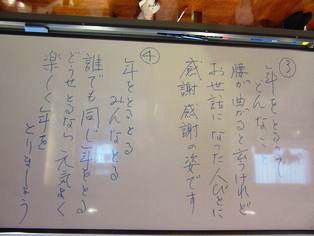 ③
年をとるって
どんなこと
腰が曲がると云うけれど
お世話になった人びとに
感謝感謝の姿です
④
年をとるとる
みんなとる
誰でも同じ年をとる
どうせとるなら元気よく
楽しく年を
とりましょう